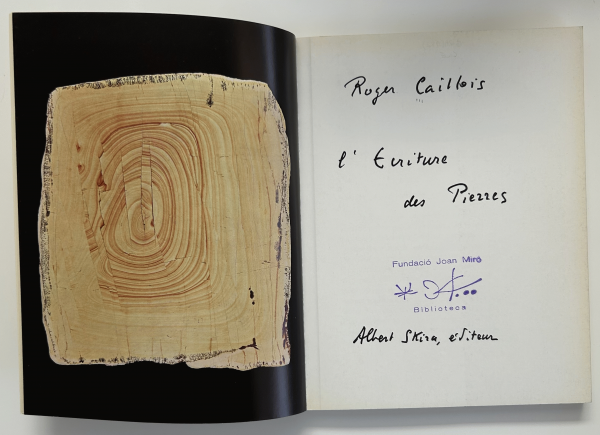 Roger Caillois
l' Ecriture
des Pierres
Fundació Joan Miró
Biblioteca
Albert Skira, éditeur